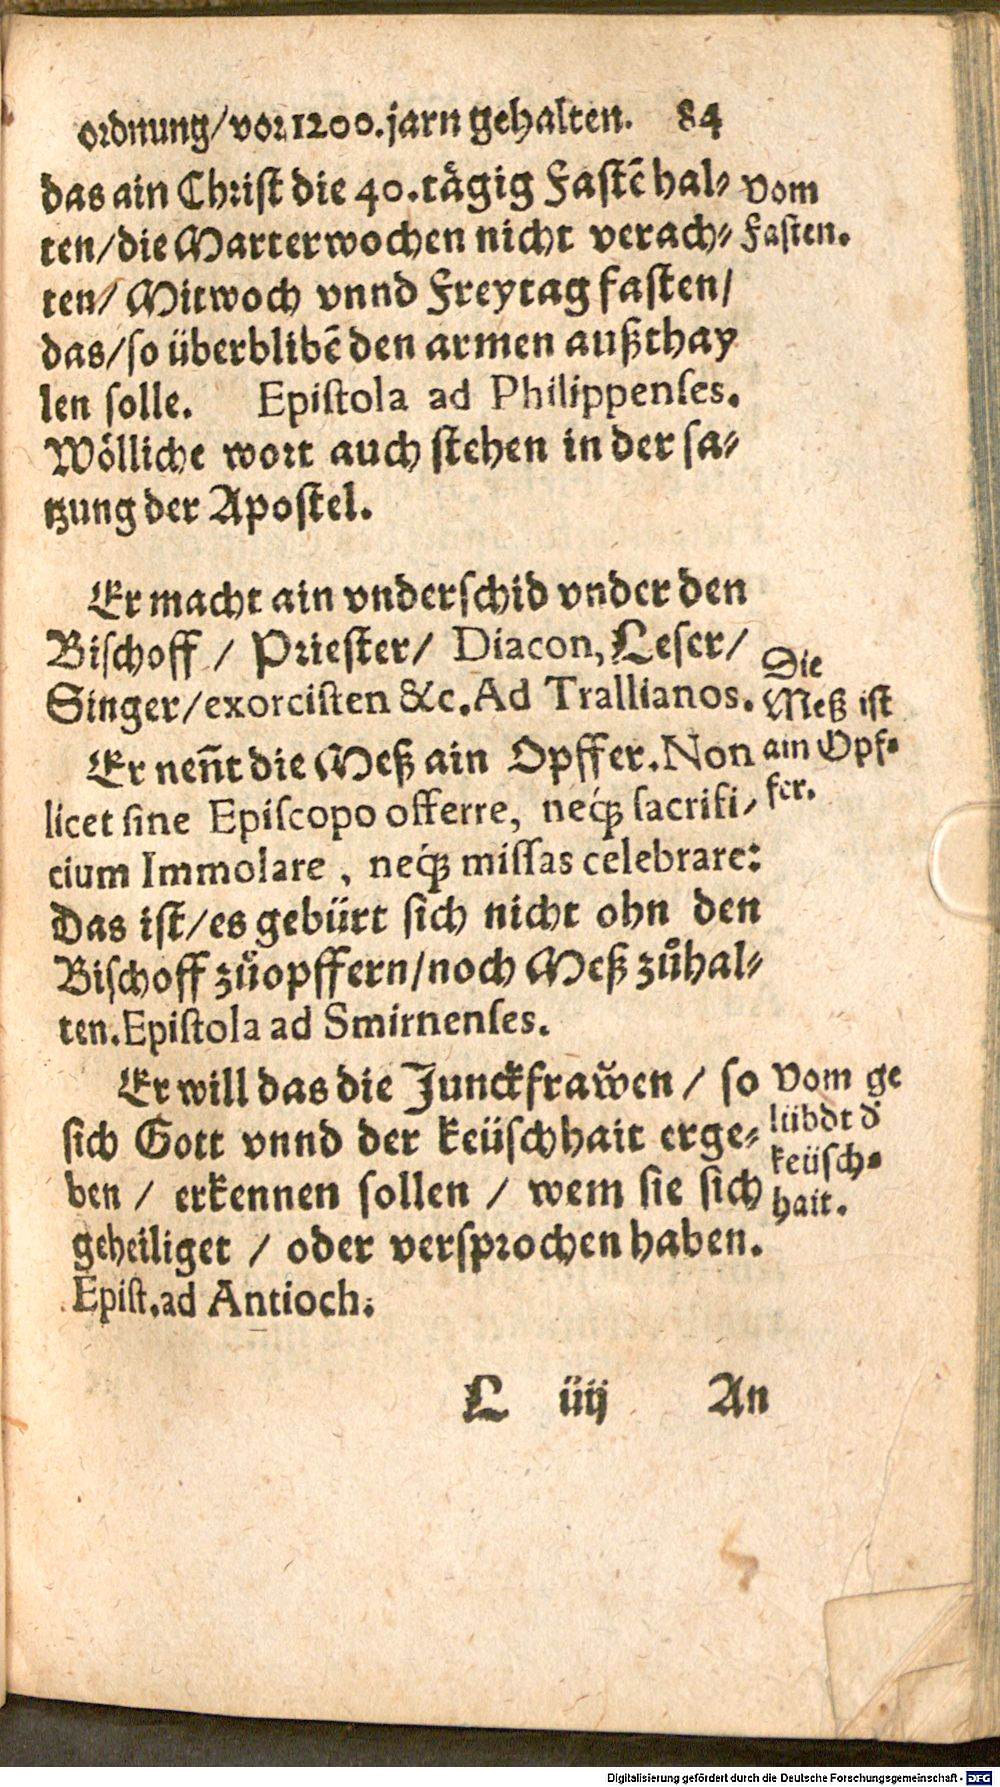 ordnung/vor 1200. jarn gehalten. 84
das ain Christ die 40. tägig Fastẽ hal⸗
ten/die Marterwochen nicht verach⸗
ten/ Mitwoch vnnd Freytag fasten/
das/so überblibẽ den armen außthay
len solle. Epistola ad Philippenses.
Wölliche wort auch stehen in der sa⸗
tzung der Apostel.
vom
Fasten.
Er macht ain vnderschid vnder den
Bischoff / Priester/ Diacon, Leser/
Singer/exorcisten &c. Ad Trallianos.
Er neñt die Meß ain Opffer. Non
licet sine Episcopo offerre, neq́; sacrifi⸗
cium Immolare, neq́; missas celebrare:
Das ist/es gebürt sich nicht ohn den
Bischoff zůopffern/noch Meß zůhal⸗
ten. Epistola ad Smirnenses.
Die
Meß ist
ain Opf⸗
fer.
Er will das die Junckfraw̆en / so
sich Gott vnnd der keüschhait erge⸗
ben / erkennen sollen / wem sie sich
geheiliget / oder versprochen haben.
Epist. ad Antioch.
Vom ge
lübdt d̕
keüsch⸗
hait.
L iiij An
Digitalisierung gefördert durch die Deutsche Forschungsgemeinschaft - DFG